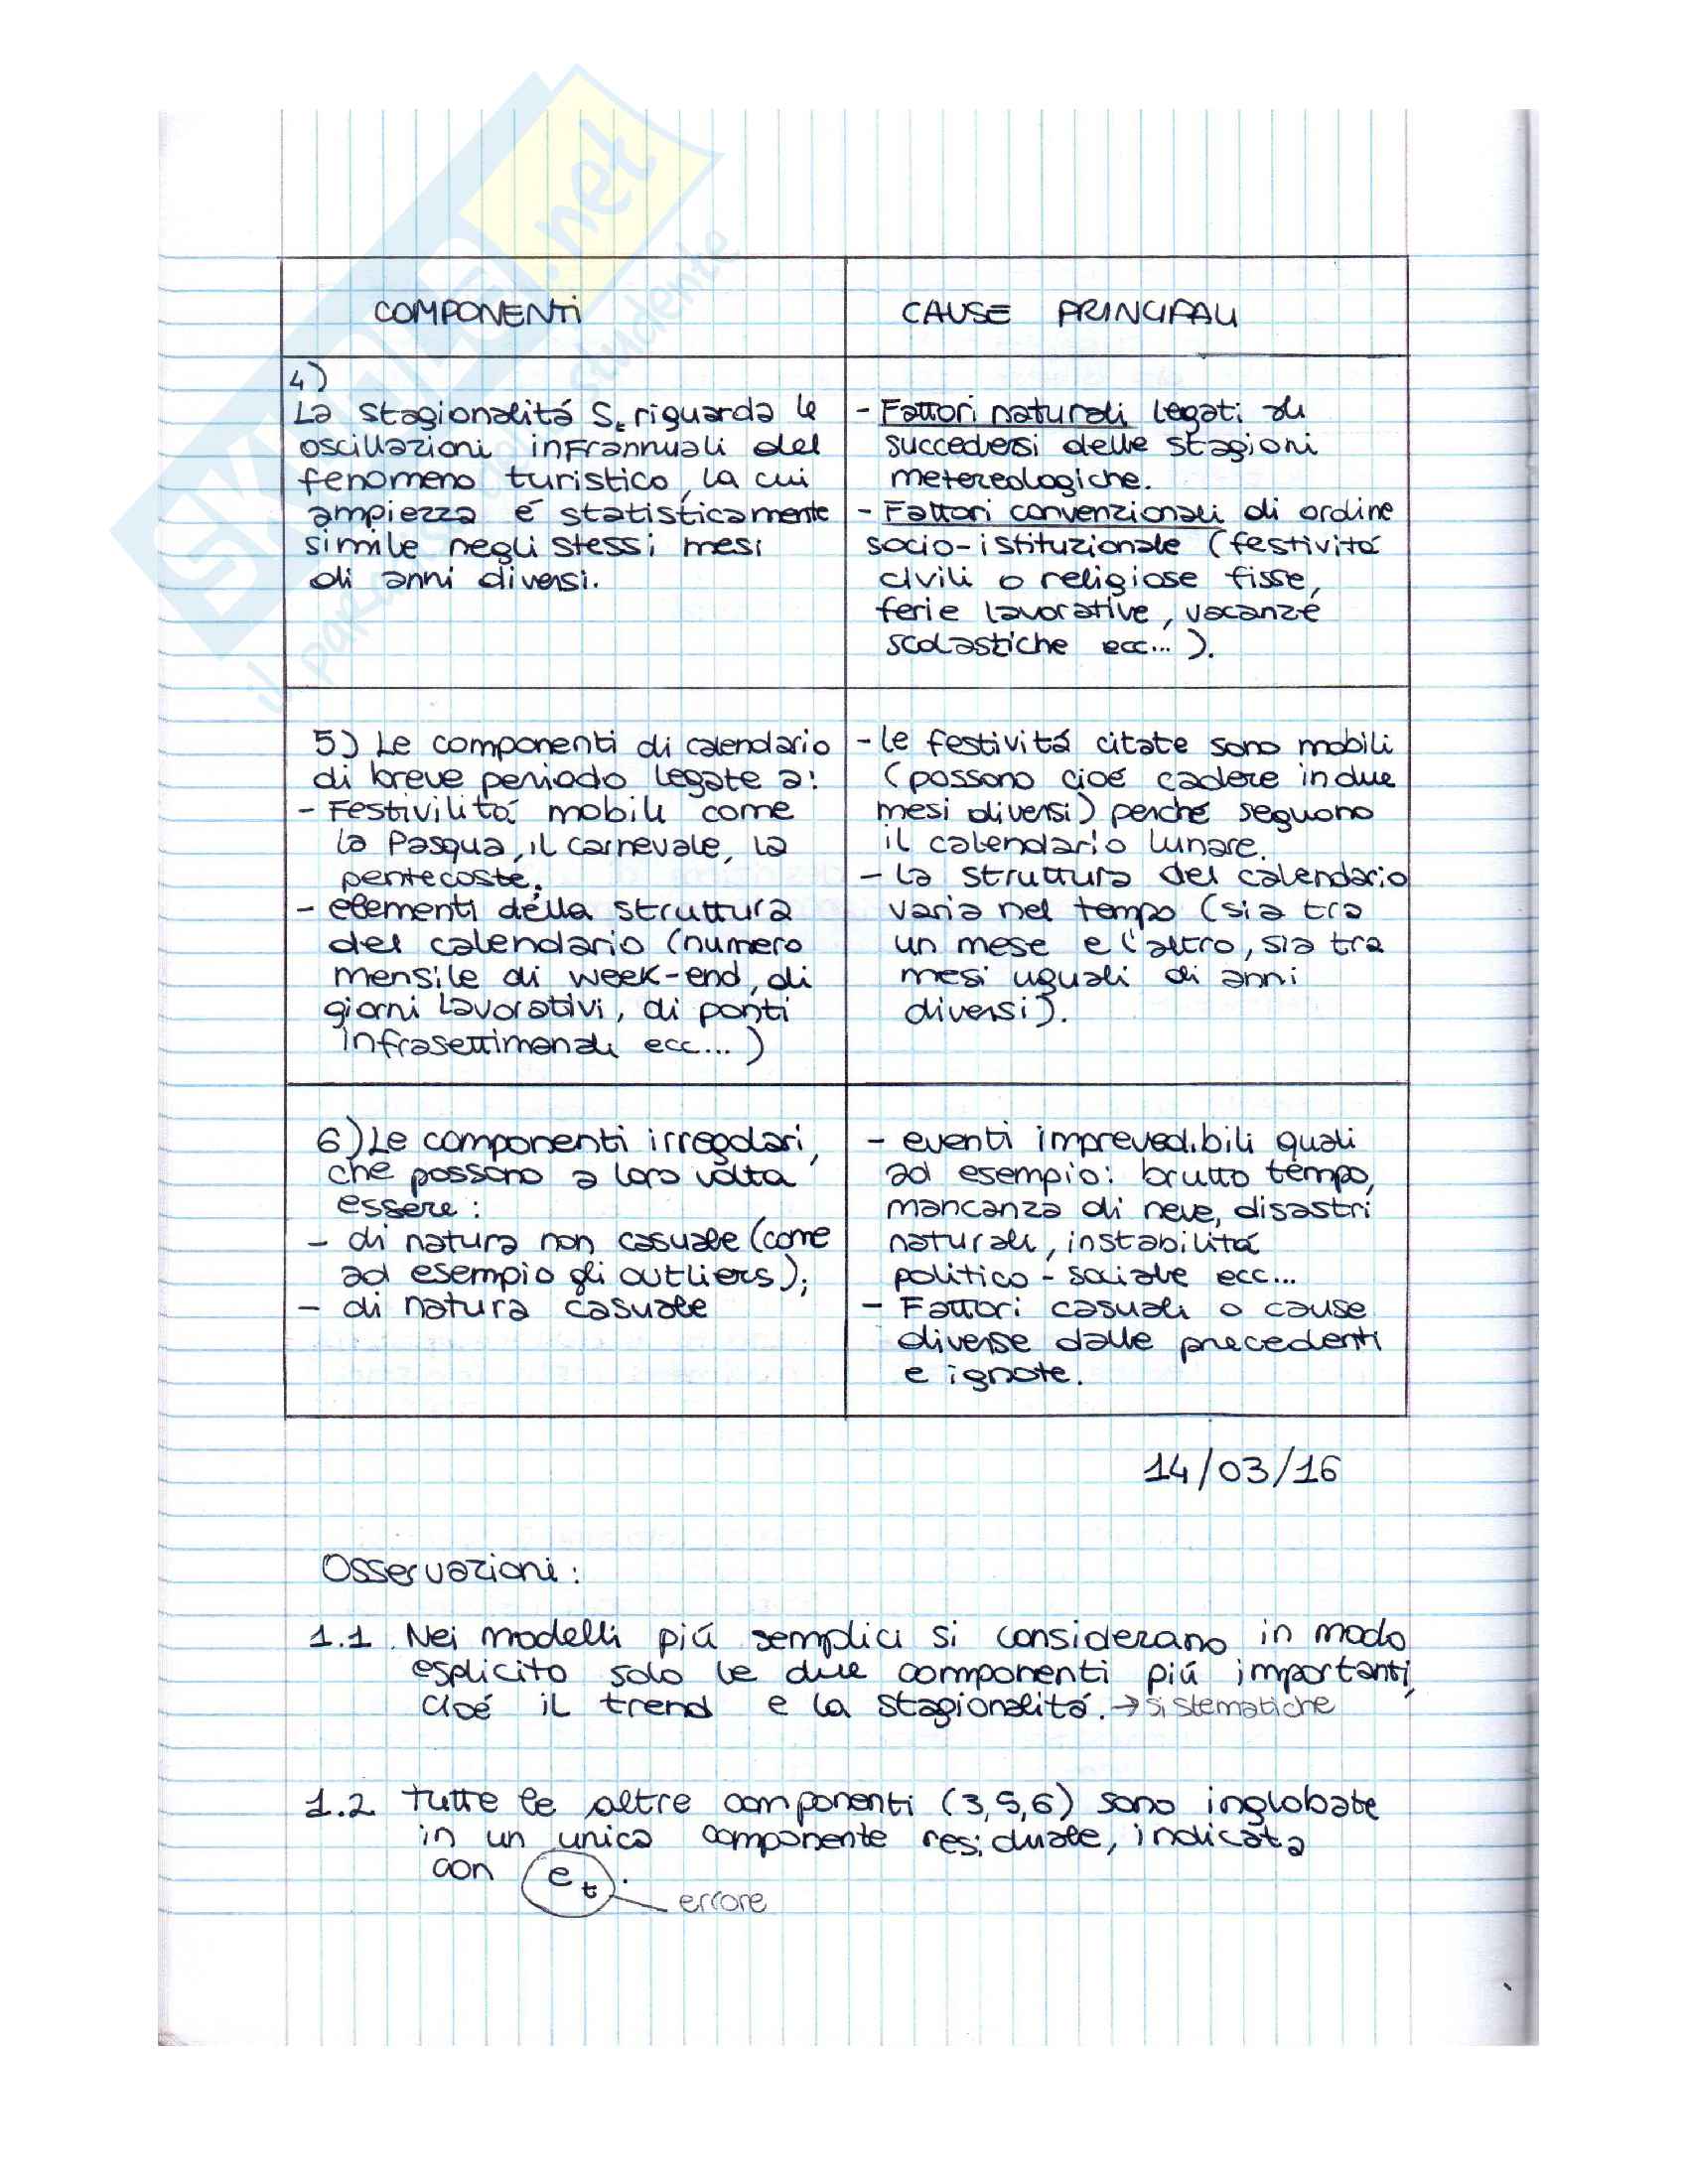 SKUOLA.net
il paradiso dello studente
COMPONENTI
CAUSE PRINCIPALI
4)
La stagionalitá St riguarda le
oscillazioni infrannuali del
fenomeno turistico, la cui
ampiezza é statisticamente
simile negli stessi mesi
di anni diversi.
- Fattori naturali legati al
succedersi delle stagioni
metereologiche.
- Fattori convenzionali di ordine
socio-istituzionale (festivitá
civili o religiose fisse,
ferie lavorative, vacanze
scolastiche ecc...).
5) Le componenti di calendario
di breve periodo legate a:
- Festivilitá mobili come
la Pasqua, il carnevale, la
pentecoste;
- elementi della struttura
del calendario (numero
mensile di week-end, di
giorni lavorativi, di ponti
infrasettimanali ecc...)
- le festivitá citate sono mobili
(possono cioé cadere in due
mesi diversi) perché seguono
il calendario lunare.
- la struttura del calendario
varia nel tempo (sia tra
un mese e l'altro, sia tra
mesi uguali di anni
diversi).
6) Le componenti irregolari,
che possono a loro volta
essere:
- di natura non casuale (come
ad esempio gli outliers);
- di natura casuale
- eventi imprevedibili quali
ad esempio: brutto tempo,
mancanza di neve, disastri
naturali, instabilitá
politico-sociale ecc...
- Fattori casuali o cause
diverse dalle precedenti
e ignote.
14/03/16
Osservazioni:
1.1 Nei modelli piú semplici si considerano in modo
esplicito solo le due componenti piú importanti,
cioé il trend e la stagionalitá. → sistematiche
1.2 Tutte le altre componenti (3,5,6) sono inglobate
in un unica componente residuale, indicata
con et.
errore